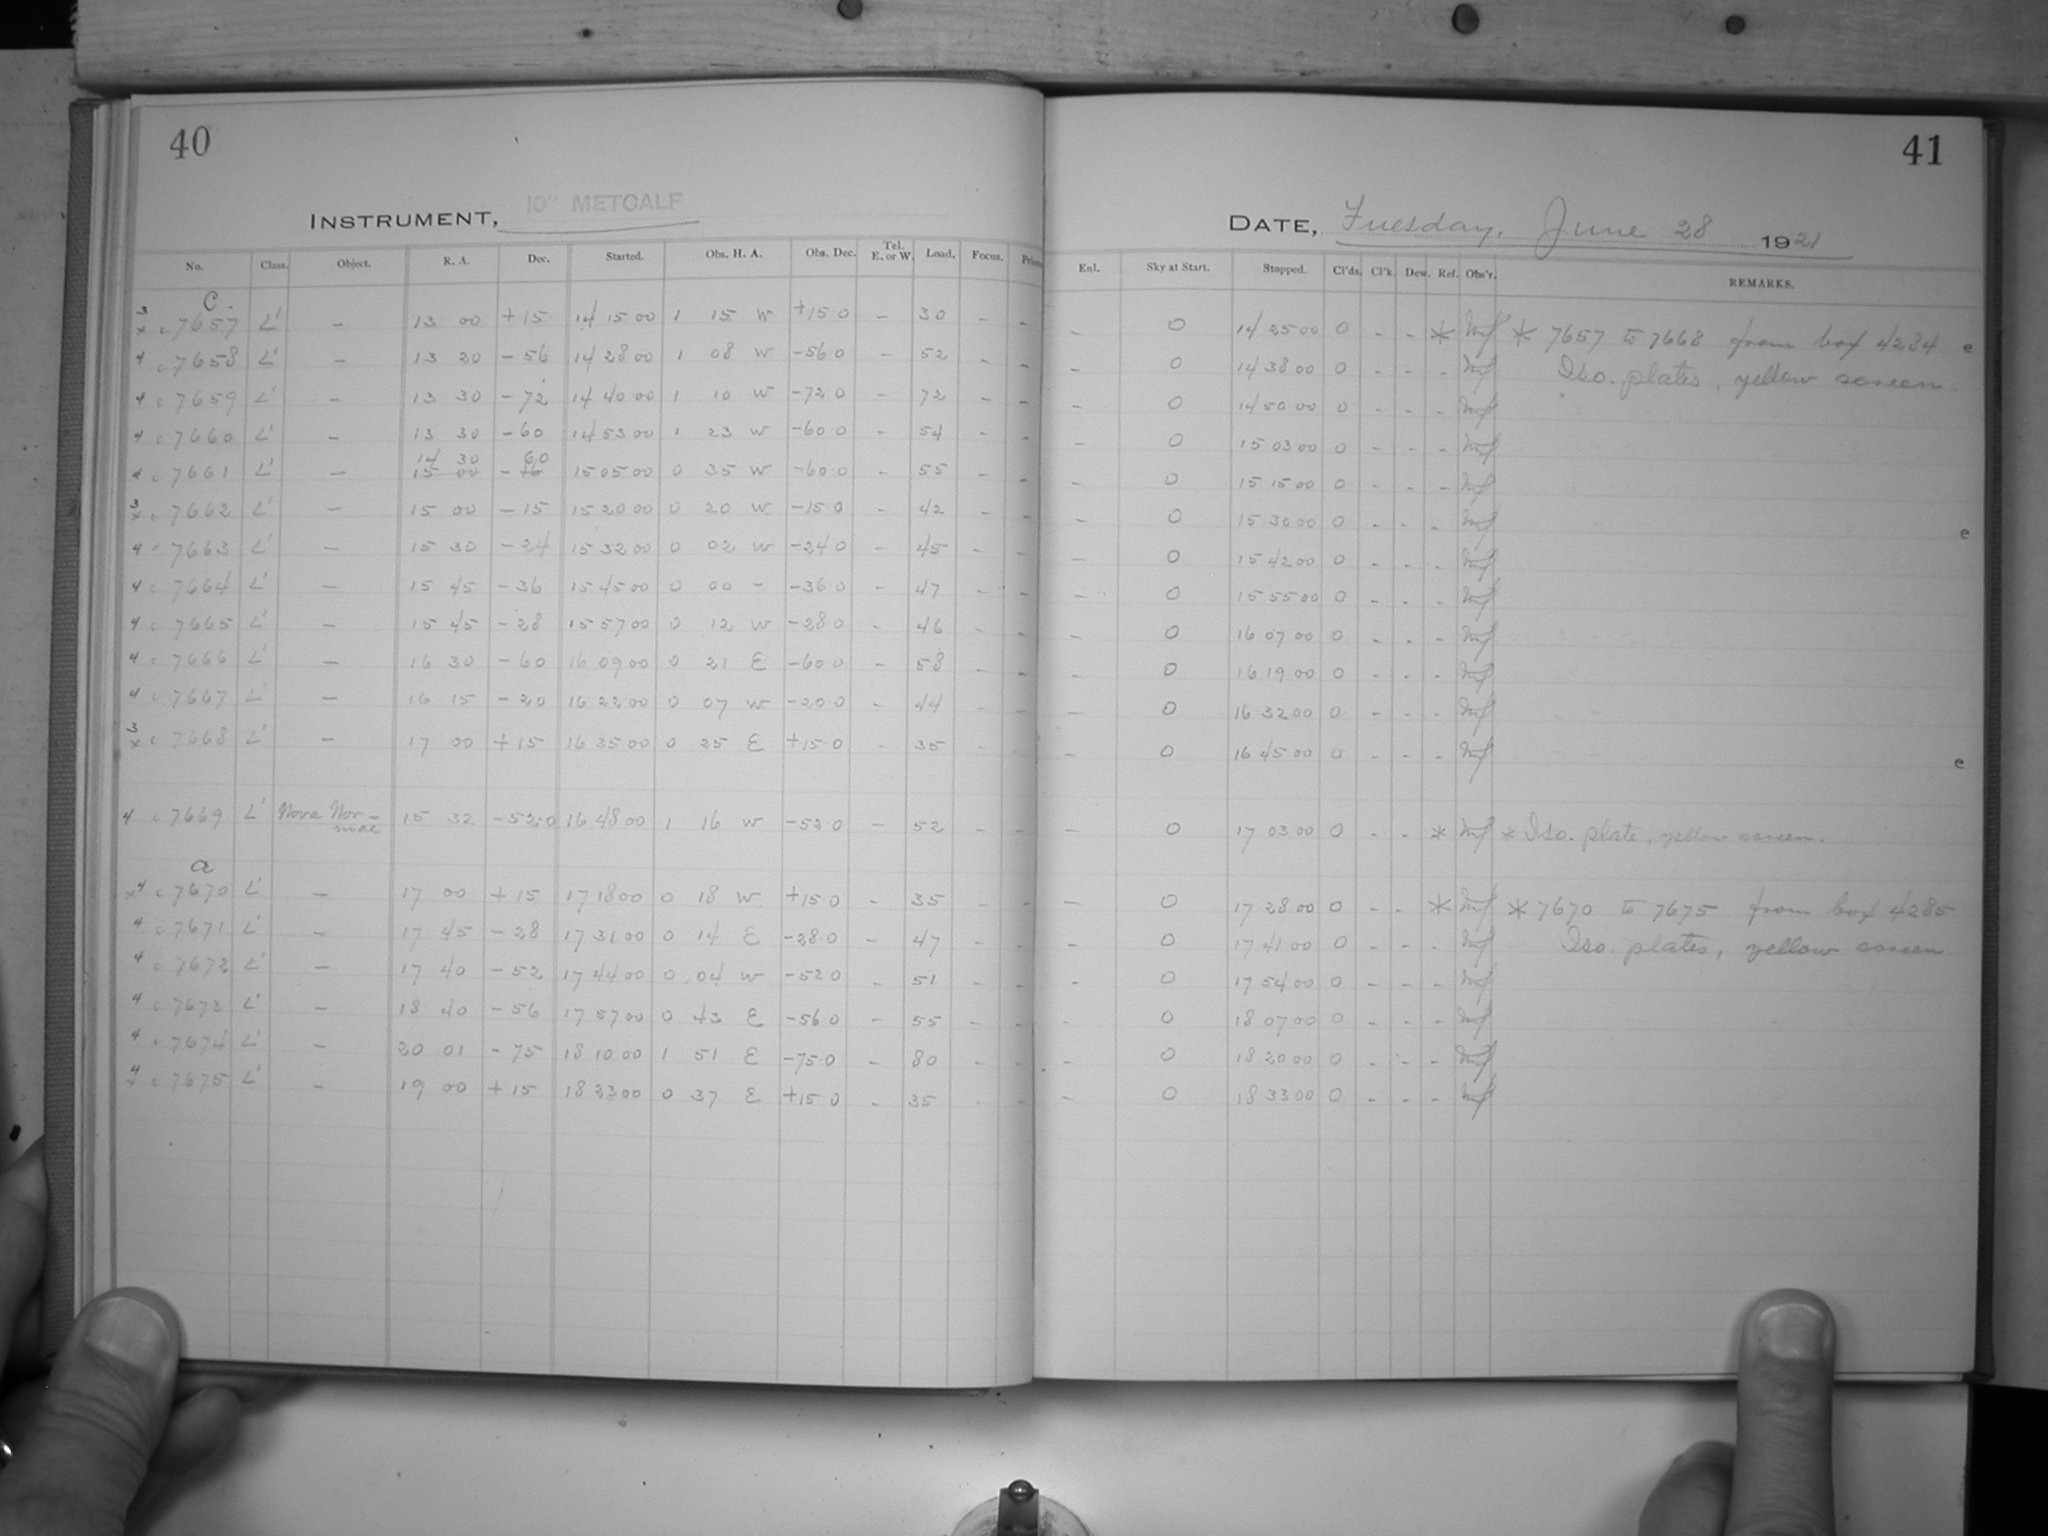 40
INSTRUMENT, 10" METCALF
No. Class. Object. R. A. Dec. Started. Obs. H. A. Obs. Dec. Tel. E. or W. Load. Focus.
C.
3 x c 7657 L' — 13 00 +15 14 15 00 1 15 W +15 0 – 30 – –
4 c 7658 L' — 13 20 –56 14 28 00 1 08 W –56 0 – 52 – –
4 c 7659 L' — 13 30 –72 14 40 00 1 10 W –72 0 – 72 – –
4 c 7660 L' — 13 30 –60 14 53 00 1 23 W –60 0 – 54 – –
14 30 60
4 c 7661 L' — 15 00 – 15 05 00 0 35 W –60 0 – 55 – –
3 x c 7662 L' — 15 00 –15 15 20 00 0 20 W –15 0 – 42 – –
4 c 7663 L' — 15 30 –24 15 32 00 0 02 W –24 0 – 45 – –
4 c 7664 L' — 15 45 –36 15 45 00 0 00 – –36 0 – 47 – –
4 c 7665 L' — 15 45 –28 15 57 00 0 12 W –28 0 – 46 – –
4 c 7666 L' — 16 30 –60 16 09 00 0 21 E –60 0 – 58 – –
4 c 7667 L' — 16 15 –20 16 22 00 0 07 W –20 0 – 44 – –
3 x c 7668 L' — 17 00 +15 16 35 00 0 25 E +15 0 – 35 – –
4 c 7669 L' Nova Nor-
mae 15 32 –52.0 16 48 00 1 16 W –52 0 – 52 – –
a
x 4 c 7670 L' — 17 00 +15 17 18 00 0 18 W +15 0 – 35 – –
4 c 7671 L' — 17 45 –28 17 31 00 0 14 E –28.0 – 47 – –
4 c 7672 L' — 17 40 –52 17 44 00 0 04 W –52 0 – 51 – –
4 c 7673 L' — 18 40 –56 17 57 00 0 43 E –56 0 – 55 – –
4 c 7674 L' — 20 01 –75 18 10 00 1 51 E –75.0 – 80 – –
4 x c 7675 L' — 19 00 +15 18 23 00 0 37 E +15 0 – 35 – –
41
DATE, Tuesday, June 28 1921
Enl. Sky at Start. Stopped. Cl'ds. Cl'k. Dew. Ref. Obs'r. REMARKS.
– 0 14 25 00 0 – – * * 7657 to 7668 from box 4284 e
– 0 14 38 00 0 – – – Iso. plates, yellow screen
– 0 14 50 00 0 – – –
– 0 15 03 00 0 – – –
– 0 15 15 00 0 – – –
– 0 15 30 00 0 – – – e
– 0 15 42 00 0 – – –
– 0 15 55 00 0 – – –
– 0 16 07 00 0 – – –
– 0 16 19 00 0 – – –
– 0 16 32 00 0 – – –
– 0 16 45 00 0 – – – e
– 0 17 03 00 0 – – * * Iso. plate, yellow screen.
– 0 17 28 00 0 – – * * 7670 to 7675 from box 4285
– 0 17 41 00 0 – – – Iso. plates, yellow screen
– 0 17 54 00 0 – – –
– 0 18 07 00 0 – – –
– 0 18 20 00 0 – – –
– 0 18 33 00 0 – – –